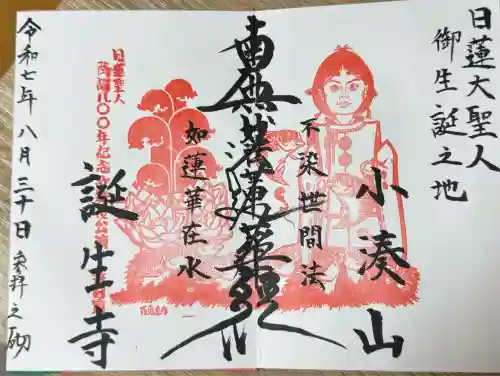 日蓮大聖人
御生誕之地
小湊山
不染世間法
南無妙法蓮華経
如蓮華在水
誕生寺
日蓮聖人
令和七年八月三十日参拝之砌